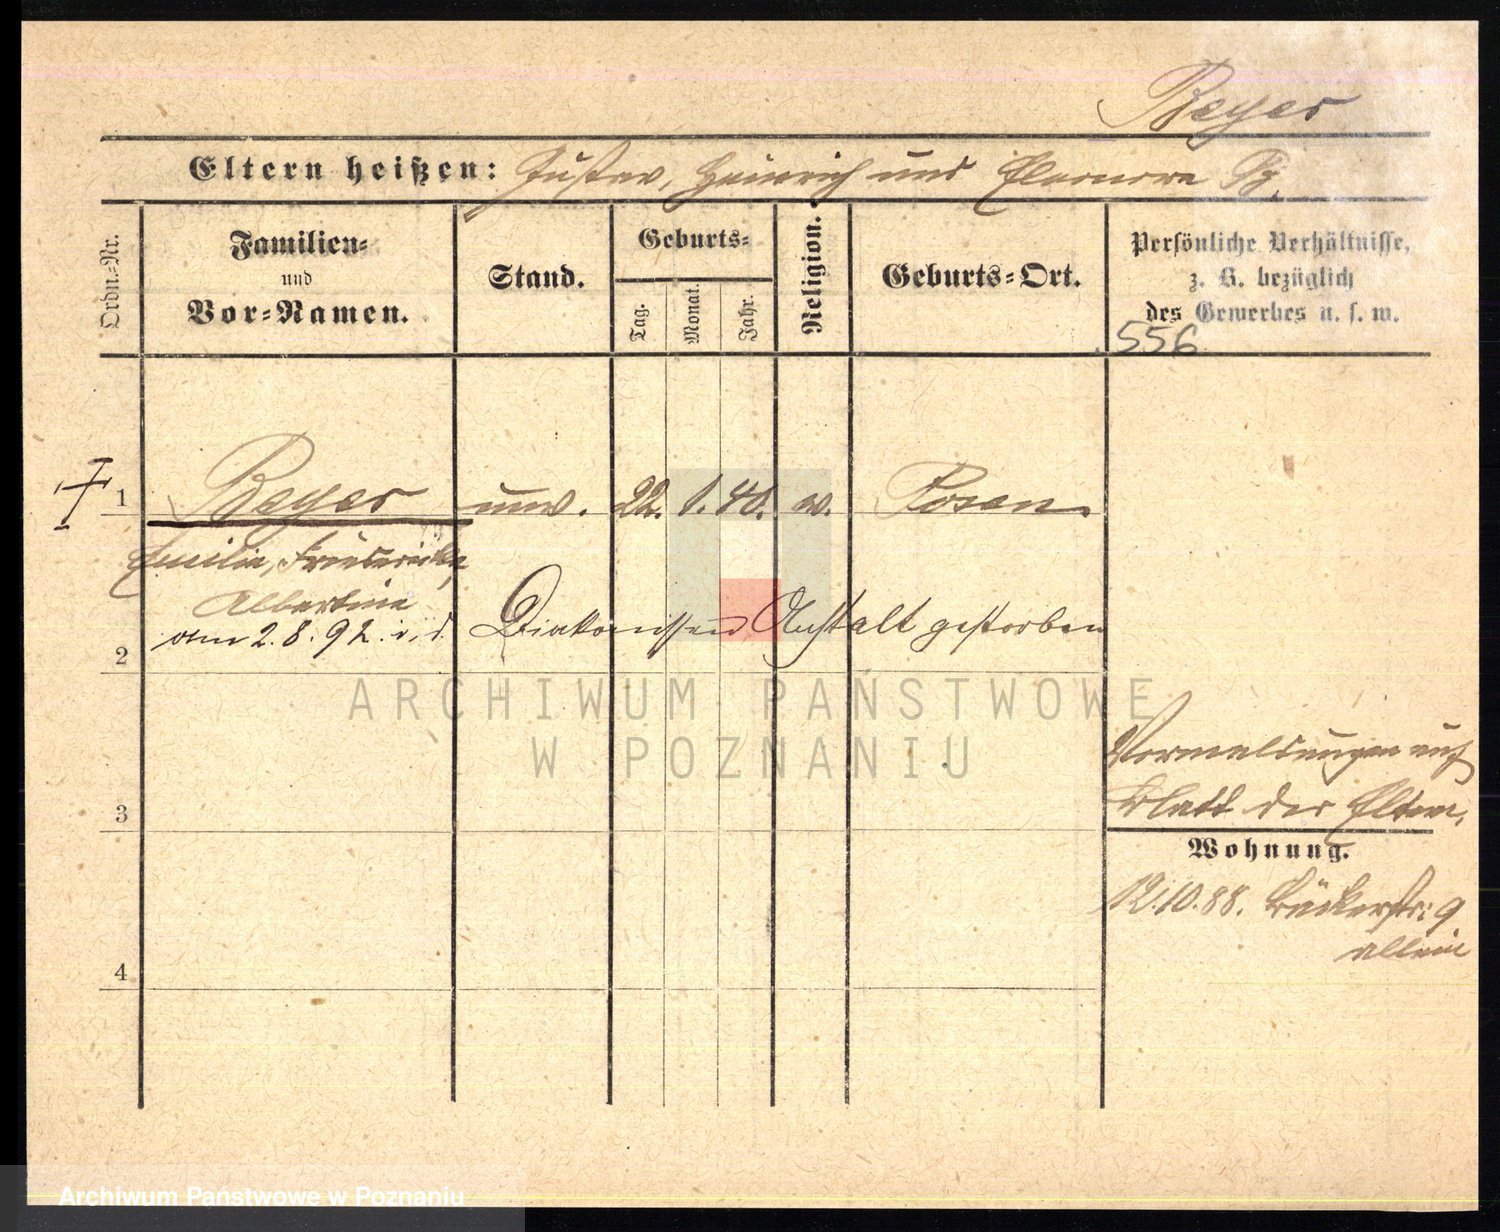 Beyer
Eltern heißen: Gustav, Heinrich und Eleonore B.
Ordn.-Nr.
Familien-
und
Vor-Namen.
Stand.
Geburts-
Tag.
Monat.
Jahr.
Religion.
Geburts-Ort.
Persönliche Verhältnisse,
z. B. bezüglich
des Gewerbes u. s. w.
556
1 Beyer unv. 22. 1. 40. w. Posen
Emilie, Friederike,
Albertine
am 2.8.92 i. d. Diakonissen Anstalt gestorben
2
ARCHIWUM PANSTWOWE
W POZNANIU
Vormeldungen auf
Blatt der Eltern.
3
Wohnung.
12.10.88. Bäckerstr: 9
allein
4
Archiwum Panstwowe w Poznaniu